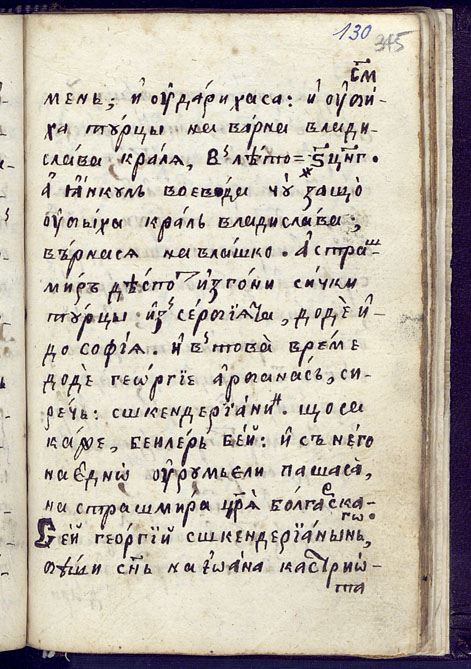 130
345
с҃м
мень; и҆ ѹ҆да́рихаса: и҆ ѹ҆би́-
ха турцы на ва́рна влади-
сла́ва кра́лѧ, въ лѣ́то= ҂ѕ҃цн҃г.
а҆ ꙗ҆нкулъ воево́да чꙋ̀ защо̀
ѹ҆быха кра́ль владисла́ва;
вѣ́рнасѧ на вла́шко. а҆ стра́ш-
миръ дѣ́спо҆т и҆зго́ни си́чки
турцы и҆з̾ се́рбїѧта, доде́ и҆-
до софїѧ. и҆ въ това̀ вре́ме
додѐ гео́ргїе а҆рбана́съ, си-
ре́чь: сшкендерїа́ни. що са
ка́же, бейлерь бе́й: и҆ съ не́го
на є҆дно̀ ѹ҆румѣели паша̀са,
на страшми́ра цр҃ѧ̀ бо́лгарска-
гѡ.
Се́й гео́ргїй сшкендерїанынь,
бѣ́ши сн҃ъ на і҆ѡа́на кастрїѡ-
та